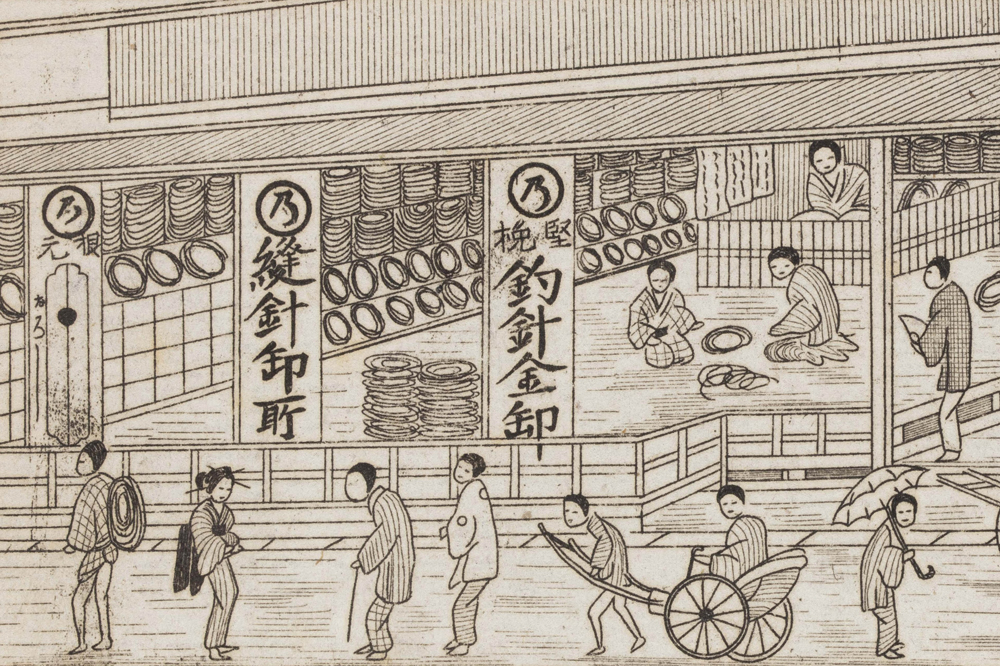 乃
堅挽
釣針金卸
乃
縫針卸所
乃
根元